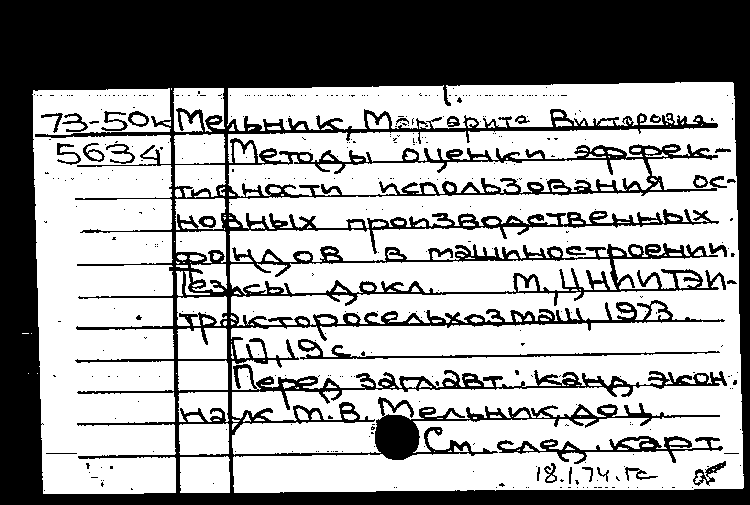 1.
73-50к Мельник, Маргарита Викторовна.
5634 Методы оценки эффек-
тивности использования ос-
новных производственных
фондов в машиностроении.
Тезисы докл. М., ЦНИИТЭИ-
тракторосельхозмаш, 1973.
[1], 19 с.
Перед загл. авт.: канд. экон.
наук М.В. Мельник, доц.
См. след. карт
18.1.74. Гс